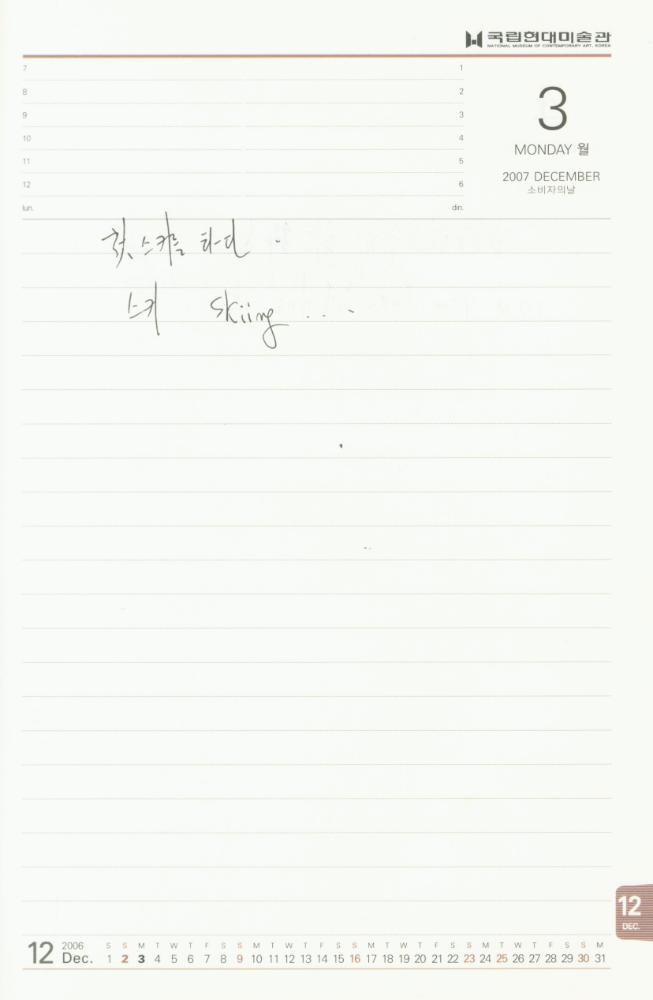 국립현대미술관
NATIONAL MUSEUM OF CONTEMPORARY ART, KOREA
7 1
8 2
9 3
10 4
11 5
12 6
lun. din.
3
MONDAY 월
2007 DECEMBER
소비자의날
첫 스키를 타다.
스키 skiing ...
12
DEC.
12 2006 Dec.
S S M T W T F S S M T W T F S S M T W T F S S M T W T F S S M
1 2 3 4 5 6 7 8 9 10 11 12 13 14 15 16 17 18 19 20 21 22 23 24 25 26 27 28 29 30 31